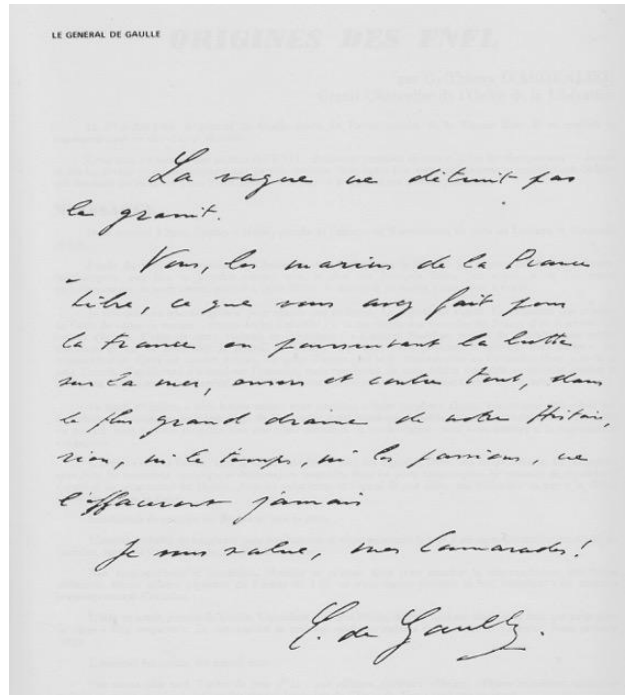 LE GENERAL DE GAULLE
ORIGINES DES FNFL
La vague ne détruit pas
le granit.
Vous, les marins de la France
Libre, ce que vous avez fait pour
la France en poursuivant la lutte
sur la mer, envers et contre tout, dans
le plus grand drame de notre Histoire,
rien, ni le temps, ni les passions, ne
l'effaceront jamais
Je vous salue, mes Camarades!
C. de Gaulle.